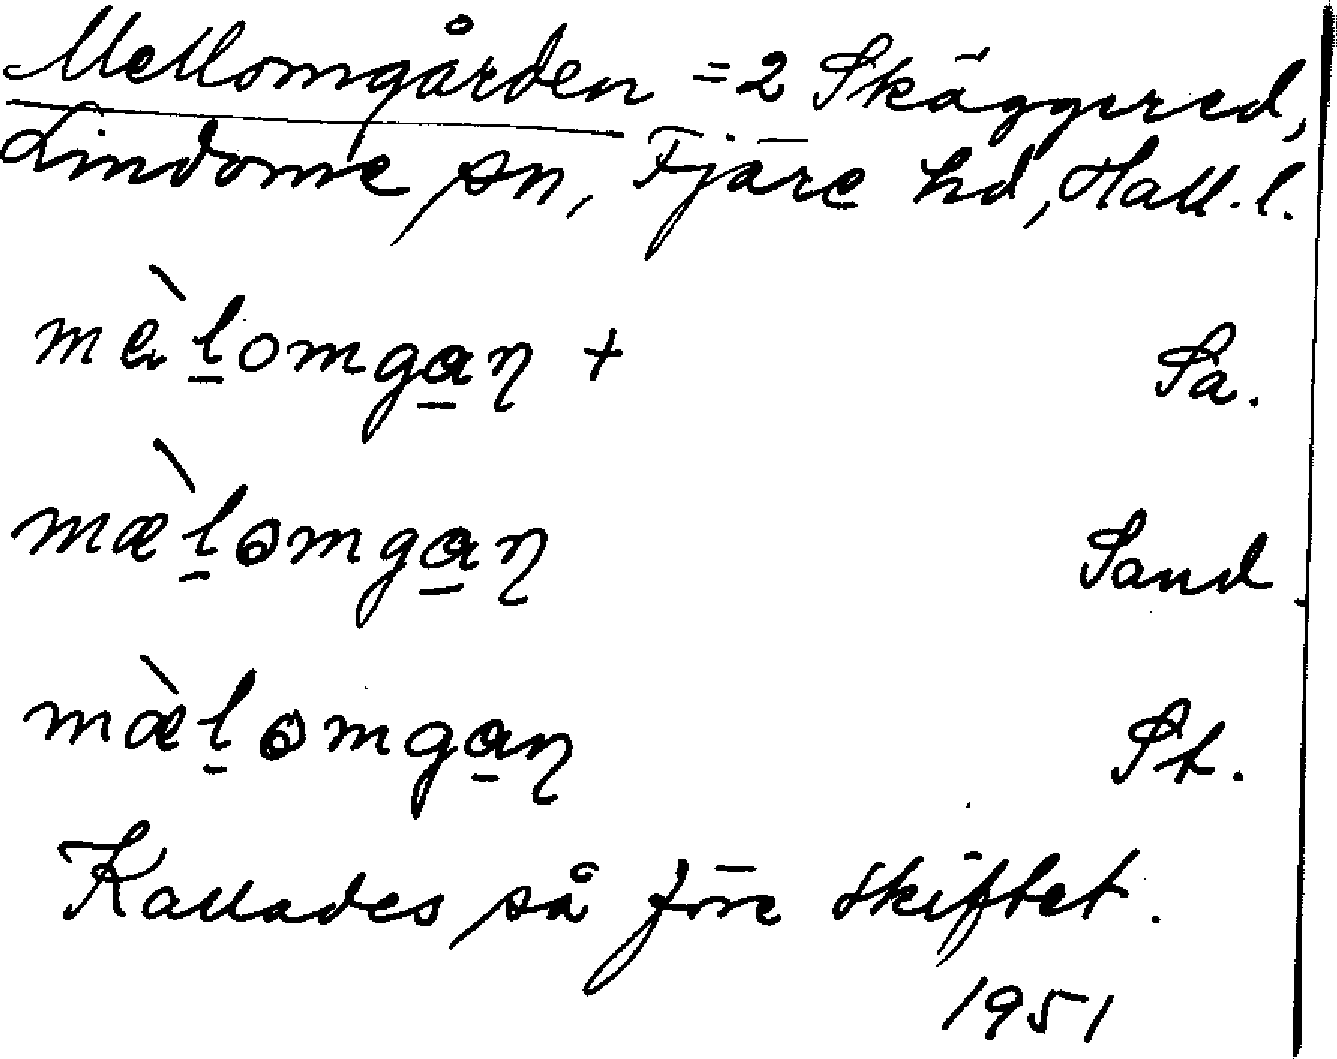 Mellomgården = 2 Skäggered,
Lindome sn, Fjäre hd, Hall. l.
mèl̠omga̠ɳ + Sa.
mæ̀l̠omga̠ɳ Sand.
mæ̀l̠omga̠ɳ St.
Kallades så före skiftet.
1951